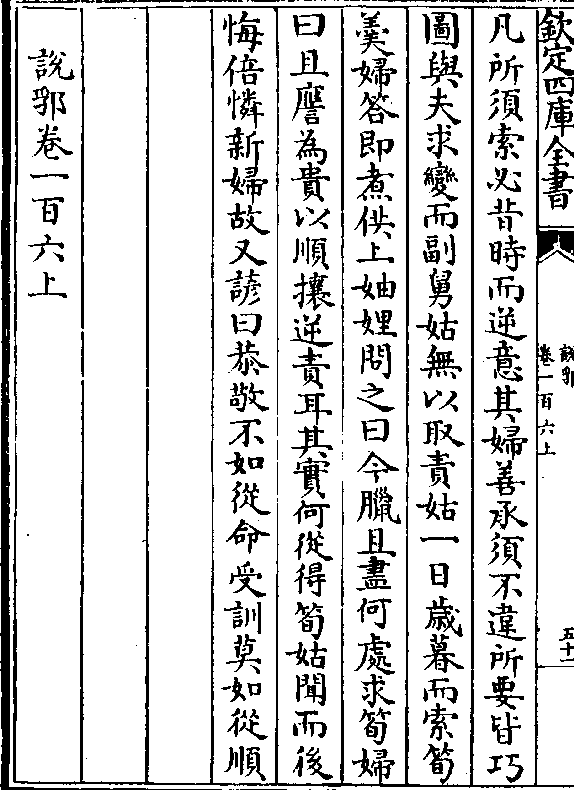 欽定四庫全書
說郛
卷一百六上
五十一
凡所須索必昔時而逆意其婦善承須不違所要皆巧
圖與夫求變而副舅姑無以取責姑一日歲暮而索筍
羹婦答即煮供上妯娌問之曰今臘且盡何處求筍婦
曰且譍為貴以順攘逆責耳其實何從得筍姑聞而後
悔倍憐新婦故又諺曰恭敬不如從命受訓莫如從順
說郛卷一百六上